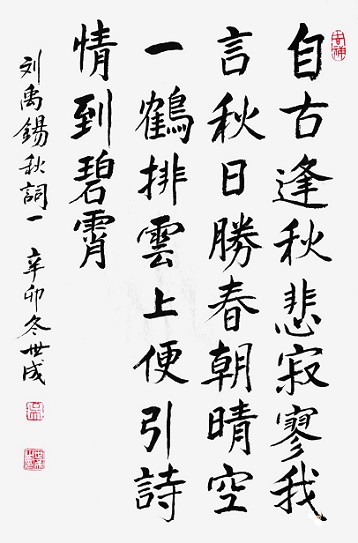 自古逢秋悲寂寥我
言秋日勝春朝晴空
一鶴排雲上便引詩
情到碧霄
刘禹錫秋詞一 辛卯冬世成